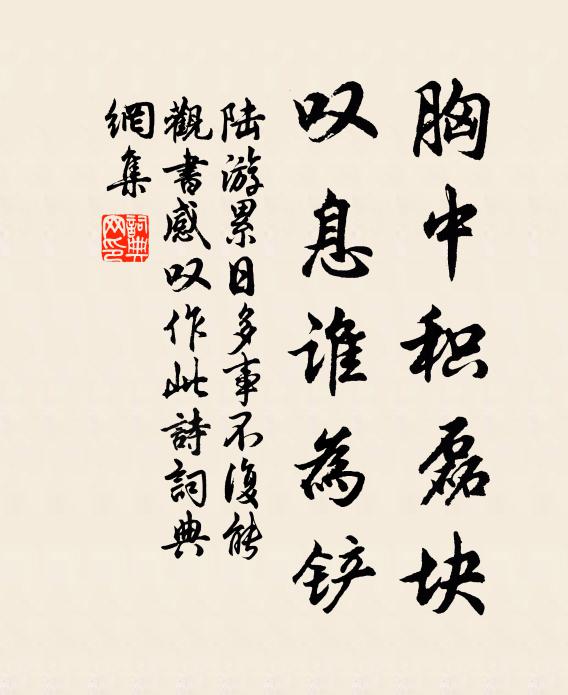 胸中积磊块
叹息谁為铲
陆游累日多事不復能
觀書感叹作此詩詞典
網集
詞典
网印